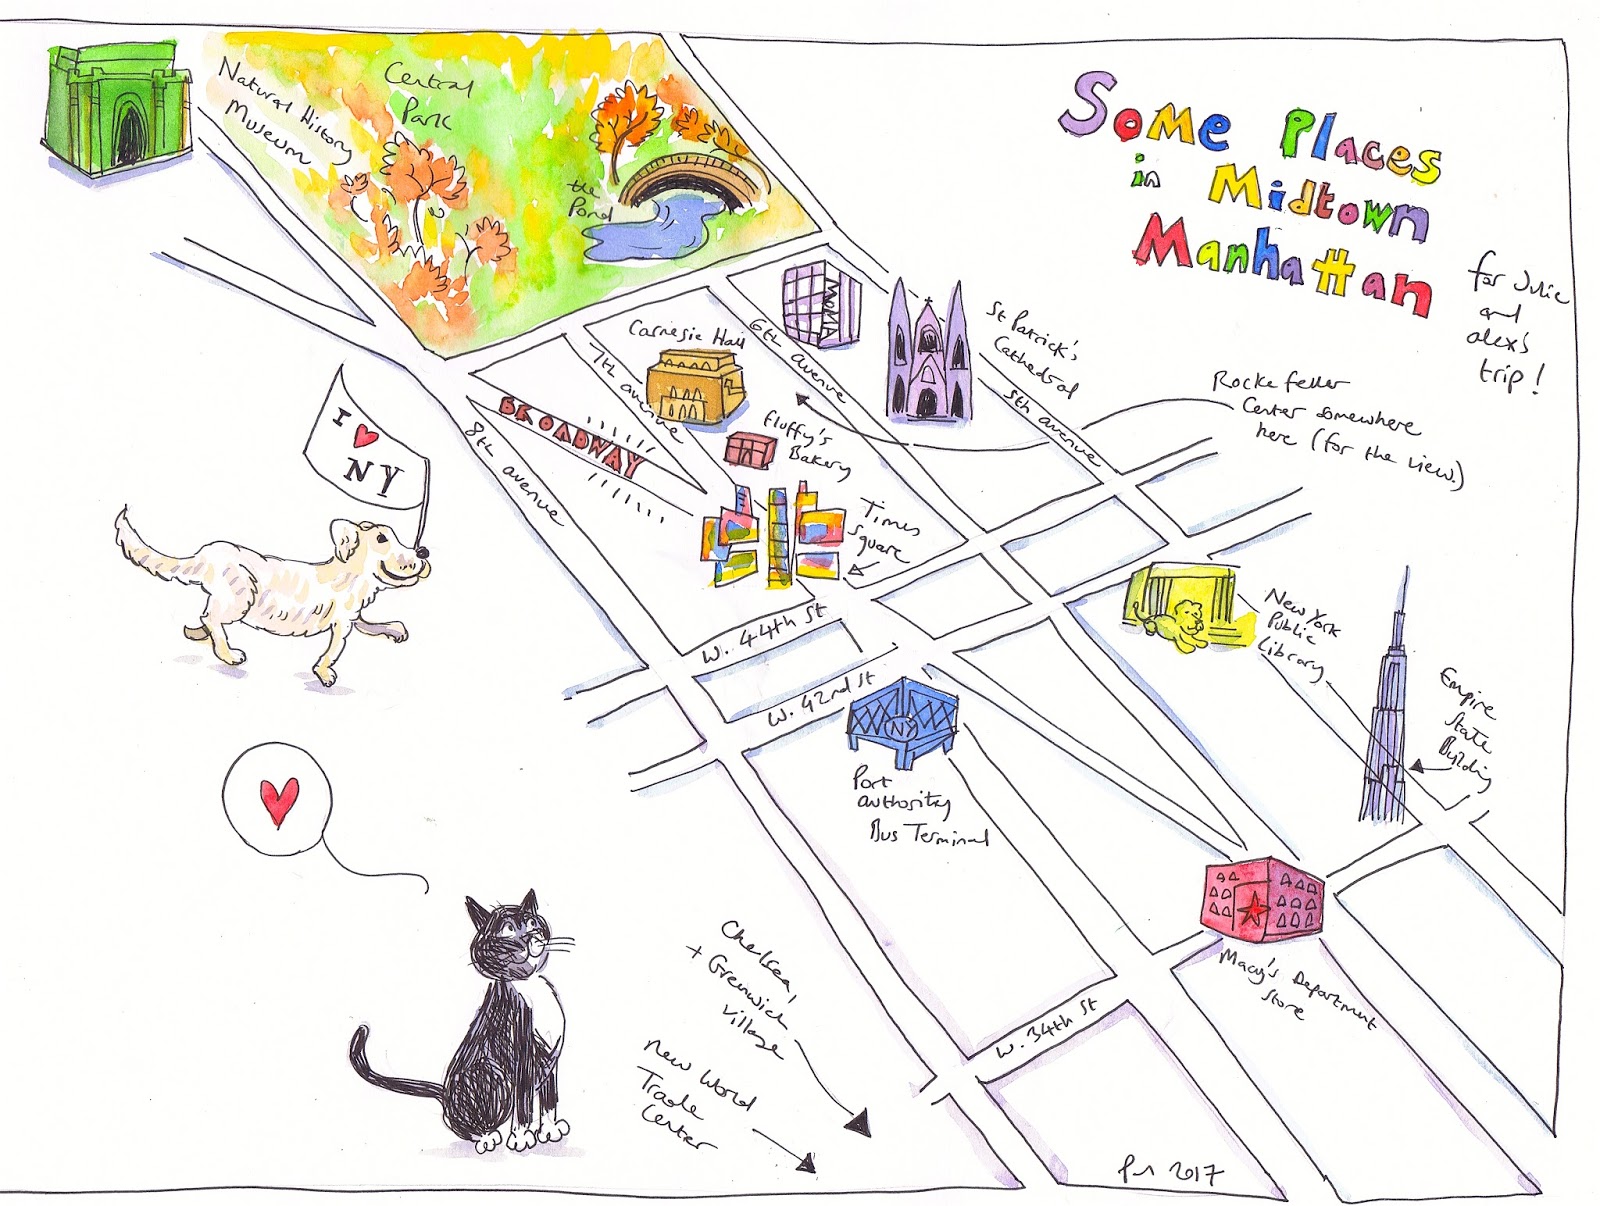 Some Places
in Midtown
Manhattan
for Julie
and
alex's
trip!
Natural History
Museum
Central
Park
the
Pond
MoMA
St Patrick's
Cathedral
Carnegie Hall
6th Avenue
7th avenue
5th avenue
8th avenue
BROADWAY
Fluffy's
Bakery
Rockefeller
Center somewhere
here (for the view.)
Times
Square
I ♥
NY
W. 44th St
W. 42nd St
NY
Port
authority
Bus Terminal
New York
Public
Library
Empire
State
Building
Macy's Department
Store
W. 34th St
Chelsea,
+ Greenwich
Village
New World
Trade
Center
2017